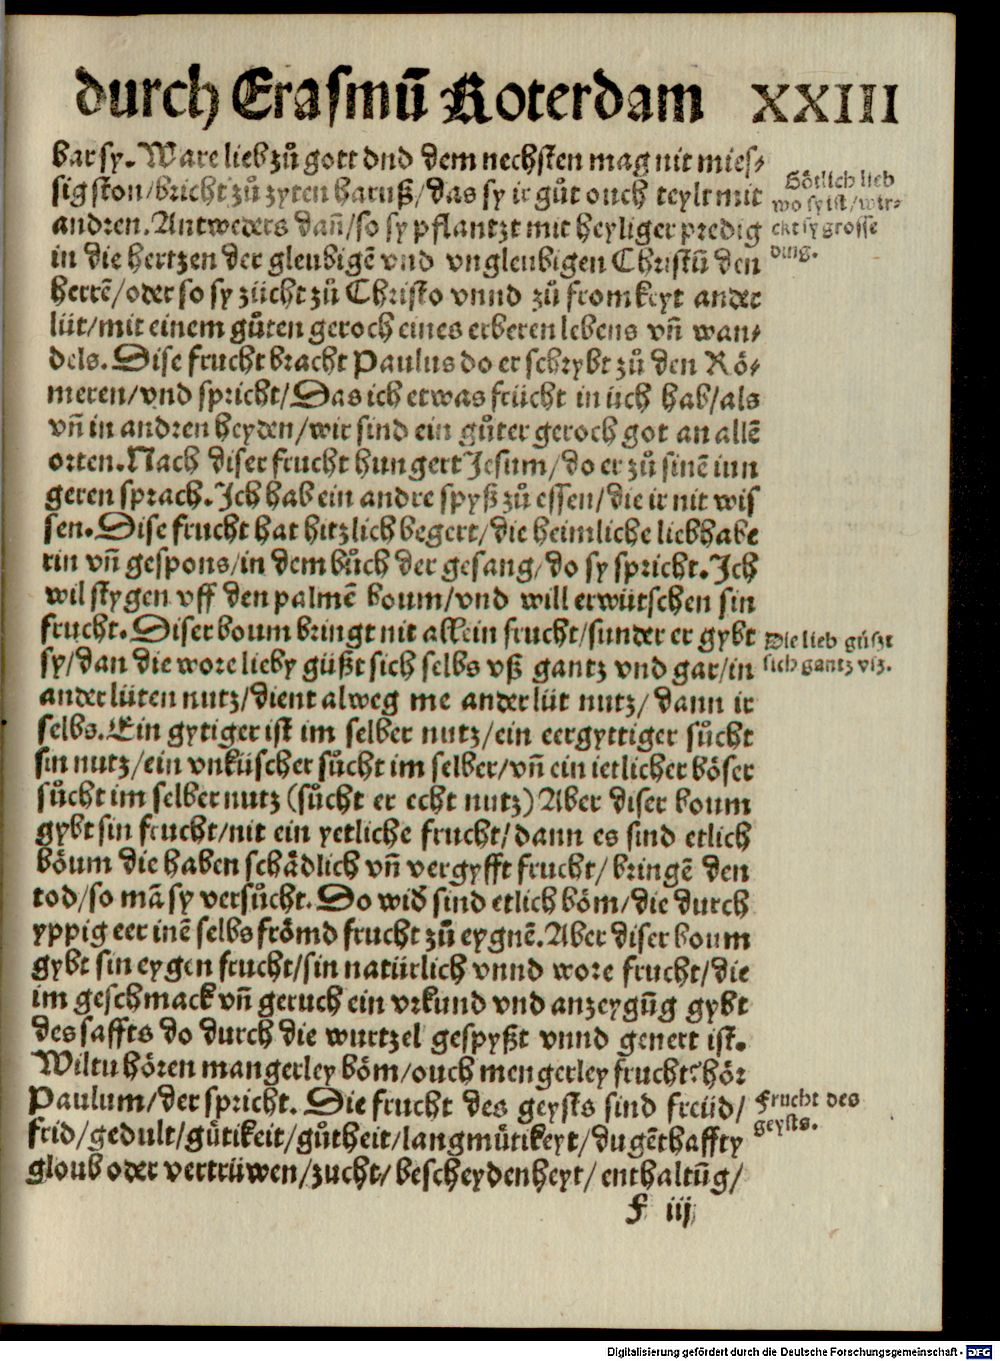 durch Erasmū Roterdam XXIII
bar sy. Ware lieb zů gott vnd dem nechsten mag nit mies-
sig ston/bricht zů zyten haruß/das sy ir gůt ouch teylt mit
andren. Antweders dañ/so sy pflantzt mit heyliger predig
in die hertzen der gleubigē vnd vngleubigen Christū den
herrē/oder so sy zücht zů Christo vnnd zů fromkeyt ander
lüt/mit einem gůten geroch eines erberen lebens vñ wan-
dels. Dise frucht bracht Paulus do er schrybt zů den Rö-
meren/vnd spricht/Das ich etwas frücht in üch hab/als
vñ in andren heyden/wir sind ein gůter geroch got an allē
orten. Nach diser frucht hungert Jesum/do er zů sinē iun
geren sprach. Ich hab ein andre spyß zů essen/die ir nit wis
sen. Dise frucht hat hitzlich begert/die heimliche liebhabe
rin vñ gespons/in dem bůch der gesang/do sy spricht. Ich
wil stygen vff den palmē boum/vnd will erwütschen sin
frucht. Diser boum bringt nit allein frucht/sunder er gybt
sy/dan die wore lieby güßt sich selbs vß gantz vnd gar/in
ander lüten nutz/dient alweg me ander lüt nutz/dann ir
selbs. Ein gytiger ist im selber nutz/ein eergyttiger sůcht
sin nutz/ein vnküscher sůcht im selber/vñ ein ietlicher böser
sůcht im selber nutz (sůcht er echt nutz) Aber diser boum
gybt sin frucht/nit ein yetliche frucht/dann es sind etlich
böum die haben schädlich vñ vergyfft frucht/bringē den
tod/so mā sy versůcht. So wid̄ sind etlich böm/die durch
yppig eer inē selbs frömd frucht zů eygnē. Aber diser boum
gybt sin eygen frucht/sin natürlich vnnd wore frucht/die
im geschmack vñ geruch ein vrkund vnd anzeygūg gybt
des saffts do durch die wurtzel gespyßt vnnd genert ist.
Wiltu hören mangerley böm/ouch mengerley frucht? hör
Paulum/der spricht. Die frucht des geysts sind freüd/
frid/gedult/gütikeit/gůtheit/langmütikeyt/dugēthaffty
gloub oder vertrüwen/zucht/bescheydenheyt/enthaltūg/
f iij
Götlich lieb
wo sy ist/wir-
ckt sy grosse
ding.
Die lieb güßt
sich gantz vß.
Frucht des
geysts.
Digitalisierung gefördert durch die Deutsche Forschungsgemeinschaft - DFG